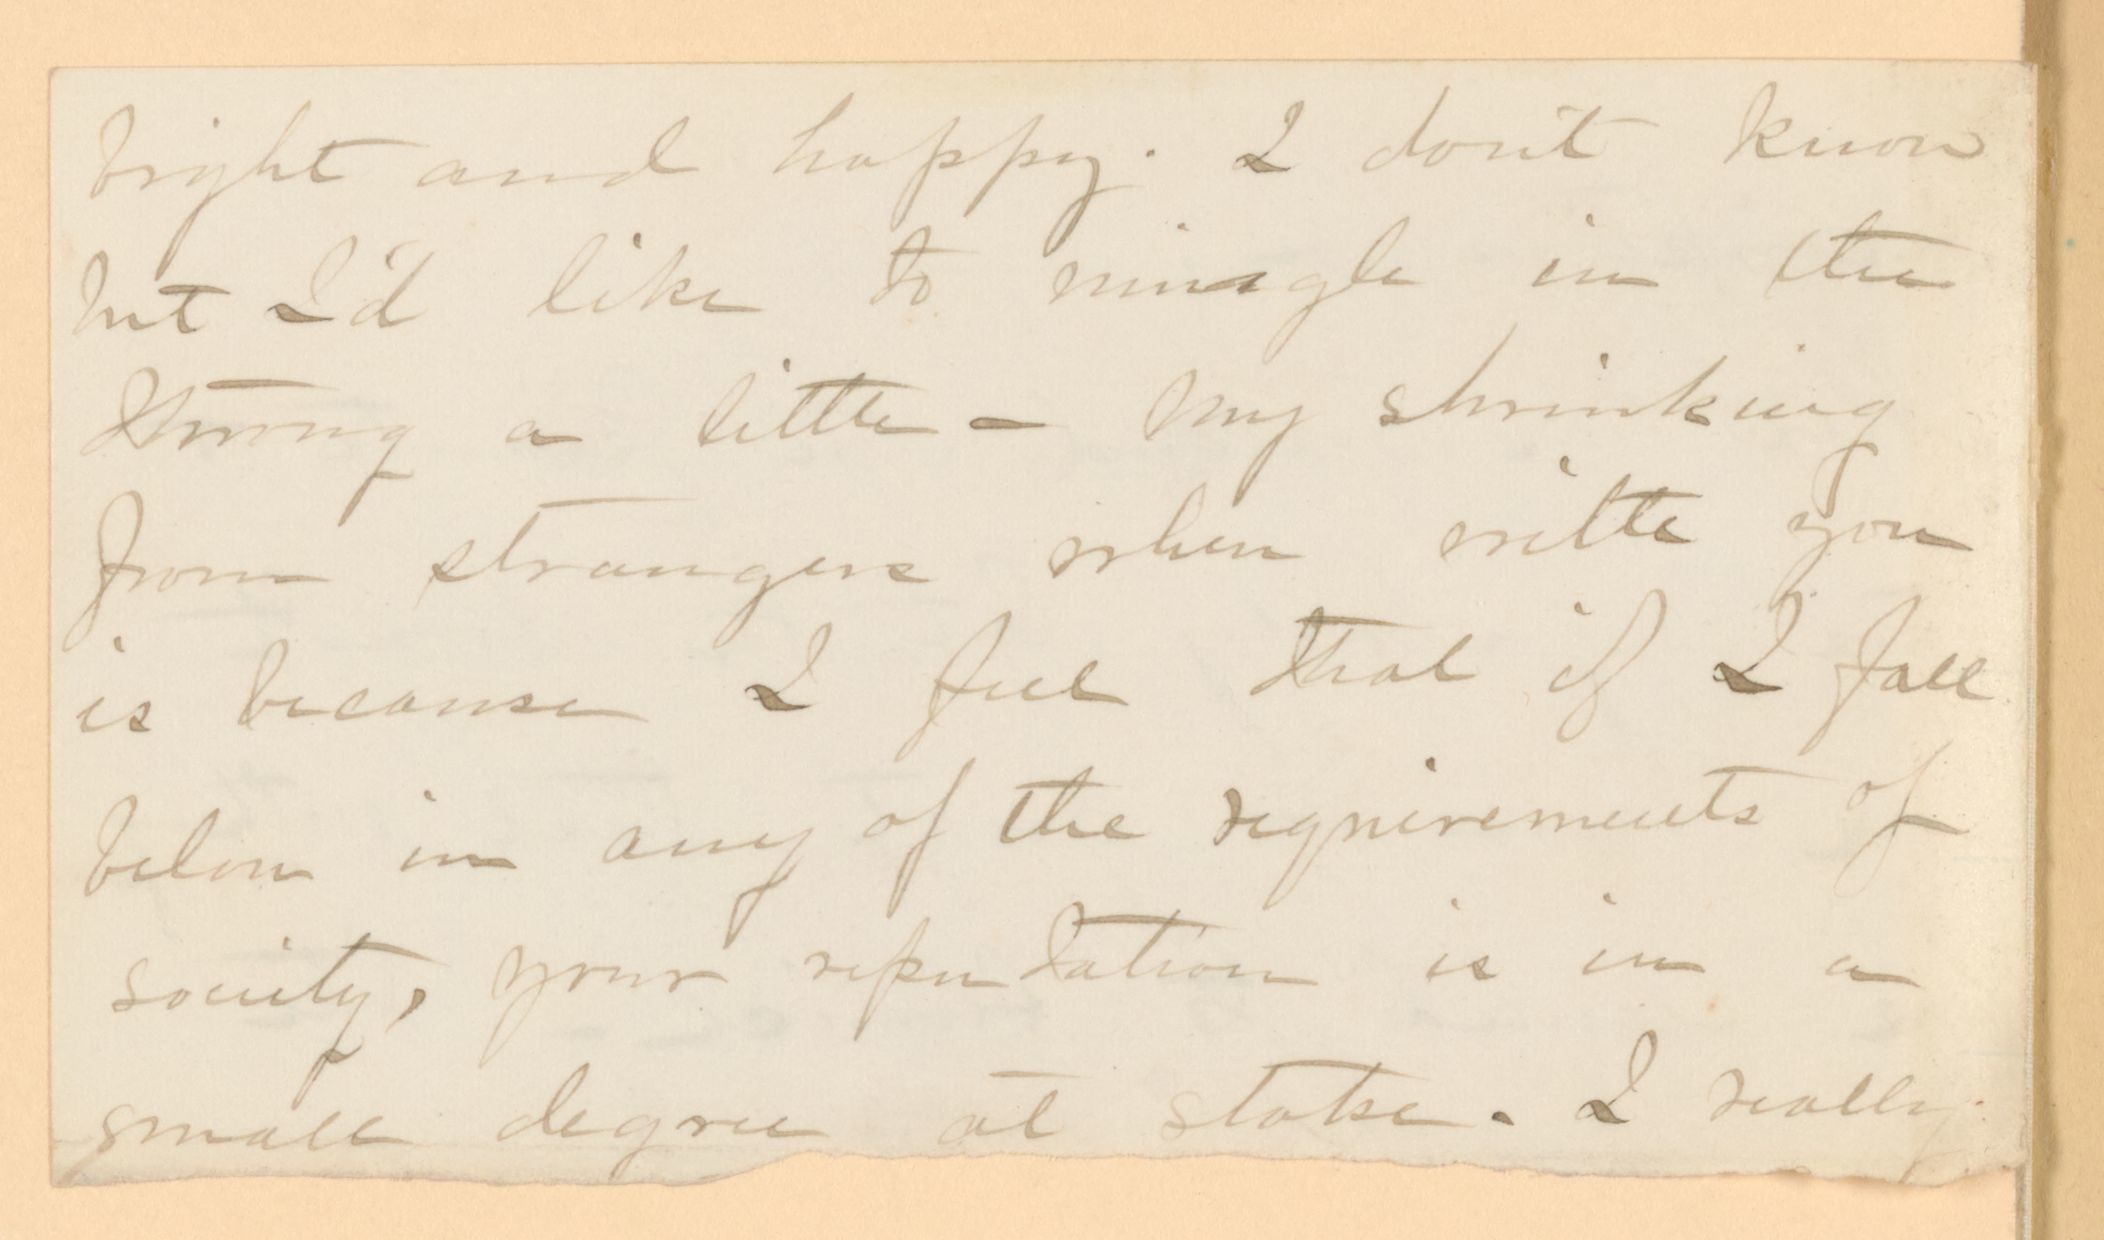 bright and happy. I don't know
but I'd like to mingle in the
throng a little – my shrinking
from strangers when with you
is because I feel that if I fall
below in any of the requirements of
society, your reputation is in a
small degree at stake. I really